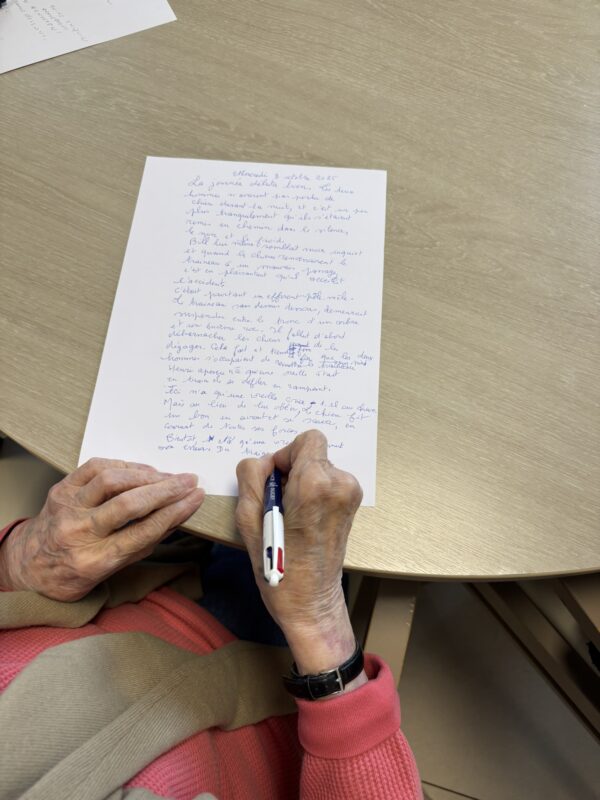 Mercredi 8 octobre 2025
La journée débuta bien. Les deux
hommes n'avaient pas perdu de
chien durant la nuit, et c'est un peu
plus tranquillement qu'ils s'étaient
remis en chemin dans le silence,
le noir et le froid.
Bill lui même semblait moins inquiet
et quand les chiens renversèrent le
traineau à un mauvais passage,
c'est en plaisantant qu'il accueillit
l'accident.
C'était pourtant un effarant pêle mêle.
Le traineau sans dessus dessous, demeurait
suspendu entre le tronc d'un arbre
et un énorme roc. Il fallut d'abord
déharnacher les chiens de les
dégager. Cela fait et que les deux
hommes s'occupaient de remettre le traineau
Henri aperçu n'a qu'une oreille était
en train de se défiler en rampant.
Ici n'a qu'une oreille cria-t-il au chien
Mais au lieu de lui obéir, le chien fit
un bon en avant et se sauva, en
courant de toutes ses forces
Bientôt, n'a qu'une